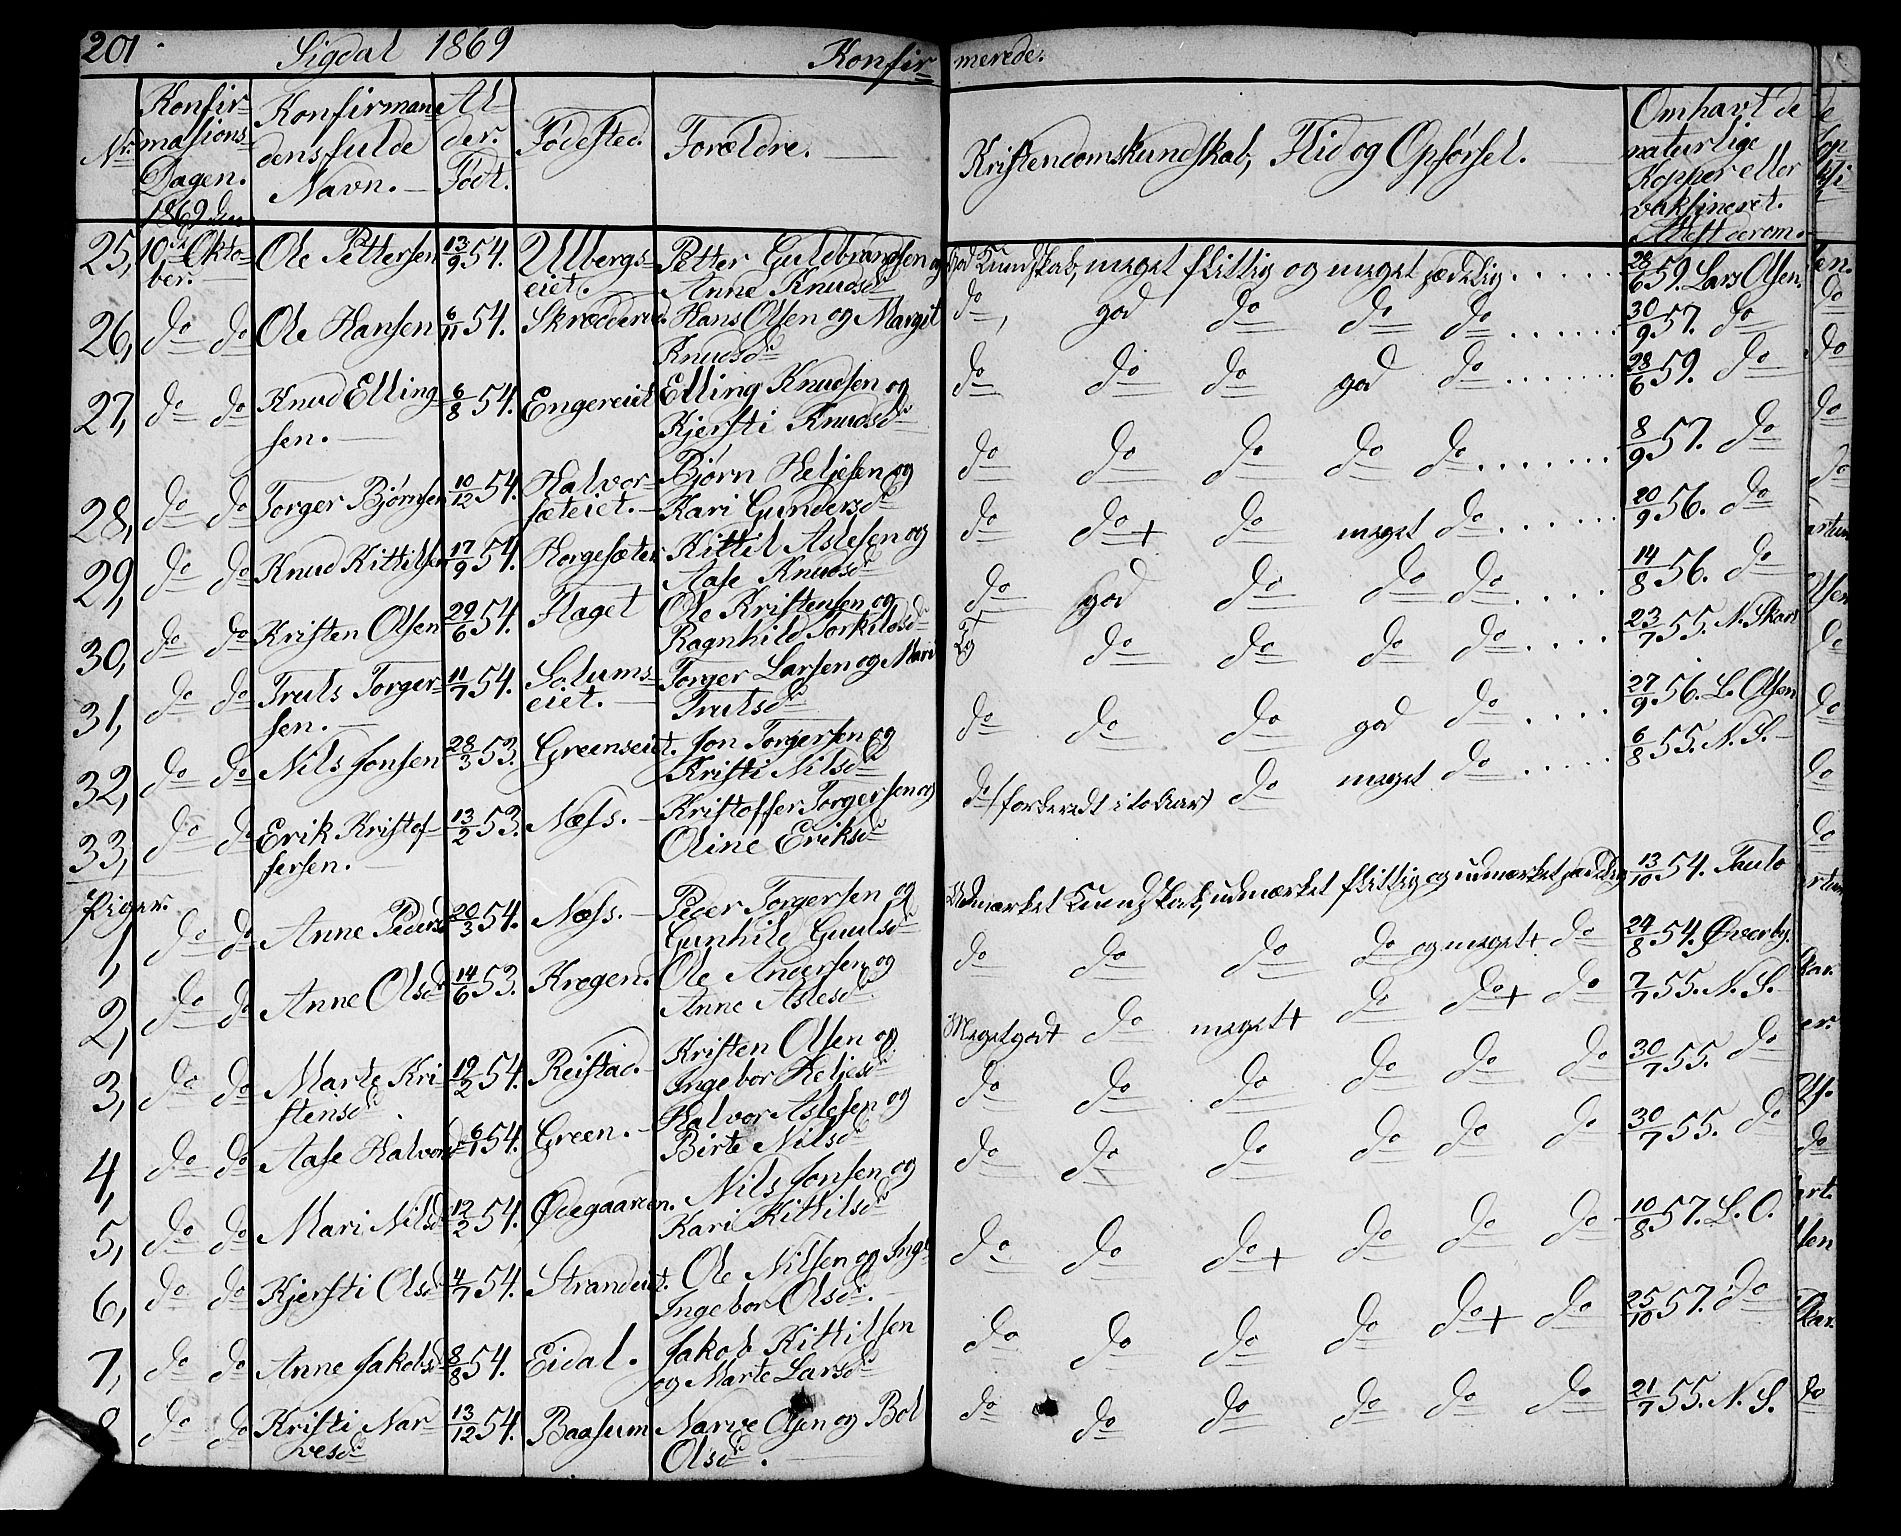 201. Sigdal 1869 Konfir=
merede.
Nr.
Konfir=
masions=
Dagen.
1869 den
Konfirman=
dens fulde
Navn. —
Al=
der.
Födt.
Födested.
Forældre. —
Kristendomskundskab, Flid og Opförsel.
Omhavt de
naturlige
Kopper eller
vaksineret.
Attest derom.
25, 10de Okto= Ole Pettersen 13/9 54. Ulbergs= Petter Guldbrandsen og God Kundskab, meget flittig og meget sædelig..... 28/6 59. Lars Olsen.
ber. — eiet. Anne Knudsd
26, do do Ole Hansen 6/11 54. Skrædderud. Hans Olsen og Margit do, god do do do...... 30/9 57. do
Knudsd
27, do do Knud Elling= 6/8 54. Engereiet Elling Knudsen og do do do god do....... 28/6 59. do
sen. — Kjersti Knudsd
28, do do Torger Björnsen 10/12 54. Halvor= Björn Heljesen og do do do do do....... 8/9 57. do
sæteiet. — Kari Gundersd
29, do do Knud Kittilsen 17/9 54. Horgesæter Kittil Aslesen og do do+ do meget do...... 20/9 56. do
Aase Knudsd
30, do do Kristen Olsen 29/6 54. Flaget Ole Kristensen og do god do do do.... 14/8 56. do
Ragnhild Torkildsd
31, do do Truls Torger= 11/7 54. Solums= Torger Larsen og Mari Tg do do do do.... 23/7 55. N. Skars
sen. — eiet. — Trulsd
32, do do Nils Jonsen 28/3 53. Greenseiet. Jon Torgersen og do do do god do.... 27/9 56. L. Olsen
Kristi Nilsd
33, do do Erik Kristof= 13/2 53. Næss. — Kristoffer Torgersen og do (forberedt i to Aar) do meget do..... 6/8 55. N. S. —
fersen. — Oline Eriksd
Piger.
1, do do Anne Pedersd 20/3 54. Næss. — Peder Torgersen og Udmærket Kundskab, udmærket flittig og udmærket sædelig 13/10 54. Taulo
Gunhild Guulsd
2, do do Anne Olsd 14/6 53. Kragen. Ole Andersen og do do do do og meget+ do 24/8 54. Överby.
Anne Aslesd
3, do do Marte Kri= 19/2 54. Reistad. — Kristen Olsen og Megetgodt do meget+ do do+ do 7/7 55. N. S.
stensd Ingebor Heljesd
4, do do Aase Halvorsd 6/1 54. Green. — Halvor Aslesen og do do do do do do 30/7 55. do
Birte Nilsd
5, do do Mari Nilsd 12/2 54. Ödegaarden. Nils Jonsen og do do do do do do 30/7 55. do
Kari Kittilsd
6, do do Kjersti Olsd 4/7 54. Strandeiet. Ole Nilsen og Inge do do do+ do do do 10/8 57. L. O.
Ingebor Olsd. —
7, do do Anne Jakobsd 8/8 54. Eidal. Jakob Kittilsen do do do do do+ do 25/10 57. do
og Marte Larsd
8, do do Kristi Nar= 13/12 54. Baasum Narve Olsen og Bol do do do do do do 21/7 55. N. S.
vesd Olsd. —